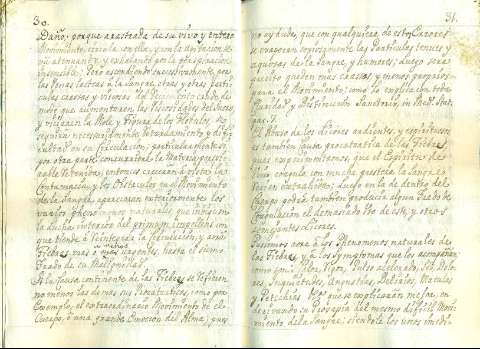 30.
Daño; porque arrastrada de su vivo y entero
Movimiento circula con ella, y con la agitacion se
va atenuando, y exhalando por la transpiracion
insensible; Pero ascendiendo succesivamente por
las venas lacteas á la sangre, otras y otras parti-
culas crasas y viscosas del
modo que aumentaran las Viscosidades del suero,
y niegan la Mole y Figura de los Globulos, se
seguirá necessariamente Retardamiento y difi-
cultad en su circulacion; particularmente si
por otra parte la Materia perspi-
rable Retenida; entonces creceran
y los Obstaculos en el Movimiento
de la sangre, apareceran exteriormente los
varios phenomenos naturales que indican
la lucha interior del primum impellens con
que tiende á reintegrar la circulacion; y assi
Fiebres, mas o menos hasta el sumo
Grado de su Malignidad.
A la Causa continente de las Fiebres se Refieren
no menos las varias sus Procatarticas, como por
Exemplo, el extraordinario Movimiento de el
Cuerpo, ó una grande Comocion del Alma; pues
31.
no ay duda, que con qualquiera de estas Causas
se evaporan copiosamente las Particulas tenues y
aquosas de la Sangre, y humores; luego sera
queden mas crassos y menos proposito
para el Movimiento; como lo explica con toda
Claridad y Distincion Sanctorio, in Med. Stat.
El Abuso de los Licores ardientes, y espirituosos
es tambien causa procatartica de las Fiebres,
pues experimentamos, que el Espiritu de
Vino coagula con mucha presteza la Sangre
recien extrahida; luego en la de dentro del
Cuerpo podrá tambien producir algun Grado de
Coagulacion el demasiado Uso de este, y otros
semejantes Licores.
Passemos aora á los Phenomenos naturales de
las Fiebres, y á los Symptomas que les acompañan;
como son: Calor, Frio, Pulso acelerado, Sed, Dolo-
res, Inquietudes, Angustias, Delirios, Maculas
y Petechias &c. que se explicarán mejor, en
derivando su del mismo dificil Movi-
miento de la Sangre; siendole los unos